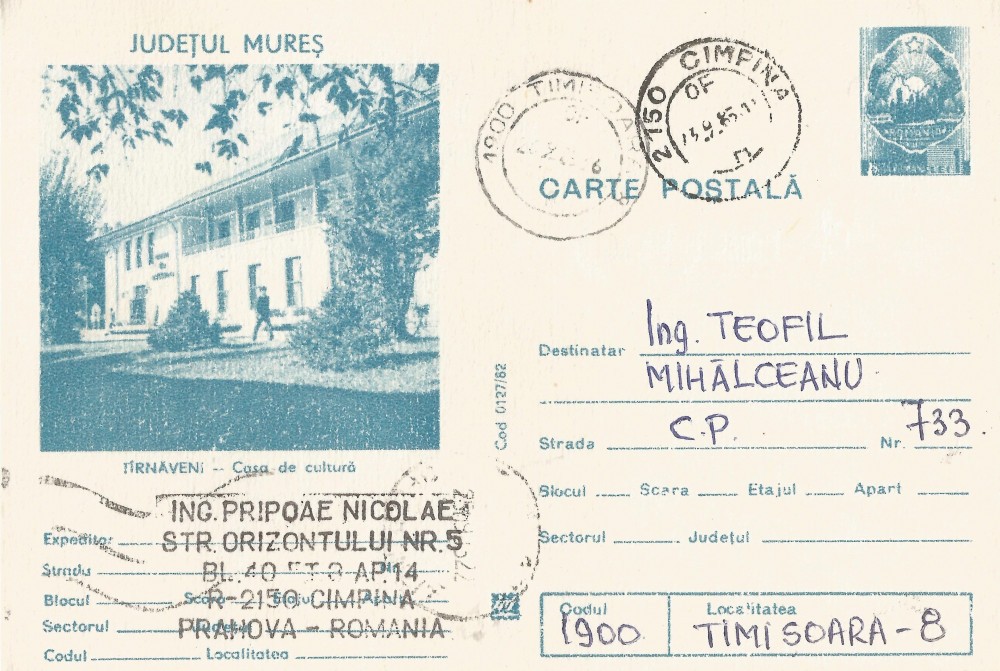 JUDEȚUL MUREȘ
2150 CIMPINA
OF
1900
ROMANIA
CARTE POȘTALĂ
Destinatar Ing. TEOFIL
MIHĂLCEANU
Strada C.P. Nr. 733.
Cod 0127/82
TÎRNĂVENI – Casa de cultură
Blocul Scara Etajul Apart
Sectorul Județul
ING. PRIPOAE NICOLAE
Expeditor STR. ORIZONTULUI NR. 5
Strada BL. 40 ET 3 AP. 14
Blocul R-2150 CIMPINA
Sectorul PRAHOVA – ROMANIA
Codul Localitatea
Codul Localitatea
1900 TIMIȘOARA-8